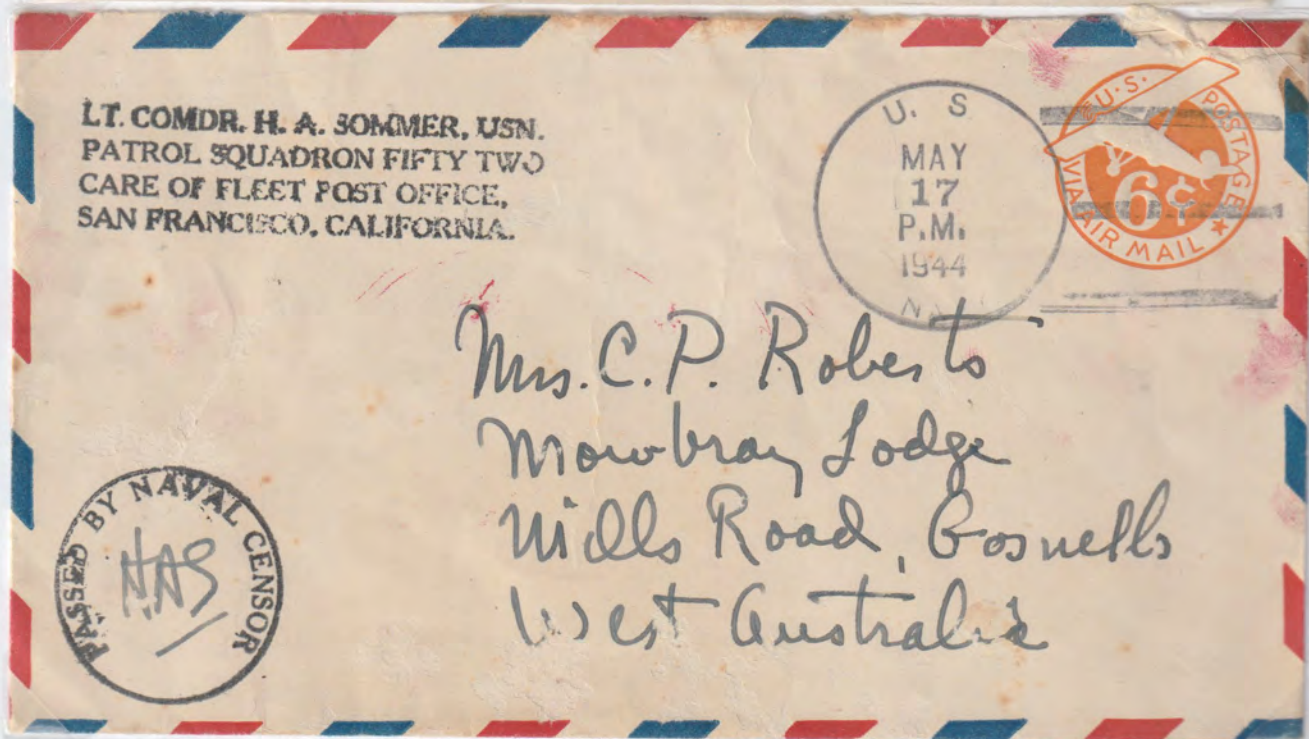 LT. COMDR. H. A. SOMMER, USN.
PATROL SQUADRON FIFTY TWO
CARE OF FLEET POST OFFICE,
SAN FRANCISCO, CALIFORNIA.
U. S.
MAY
17
P.M.
1944
NAVY
U.S. POSTAGE
6¢
VIA AIR MAIL
Mrs. C. P. Roberts
Mowbray Lodge
Mills Road, Gosnells
West Australia
PASSED BY NAVAL CENSOR
HAS